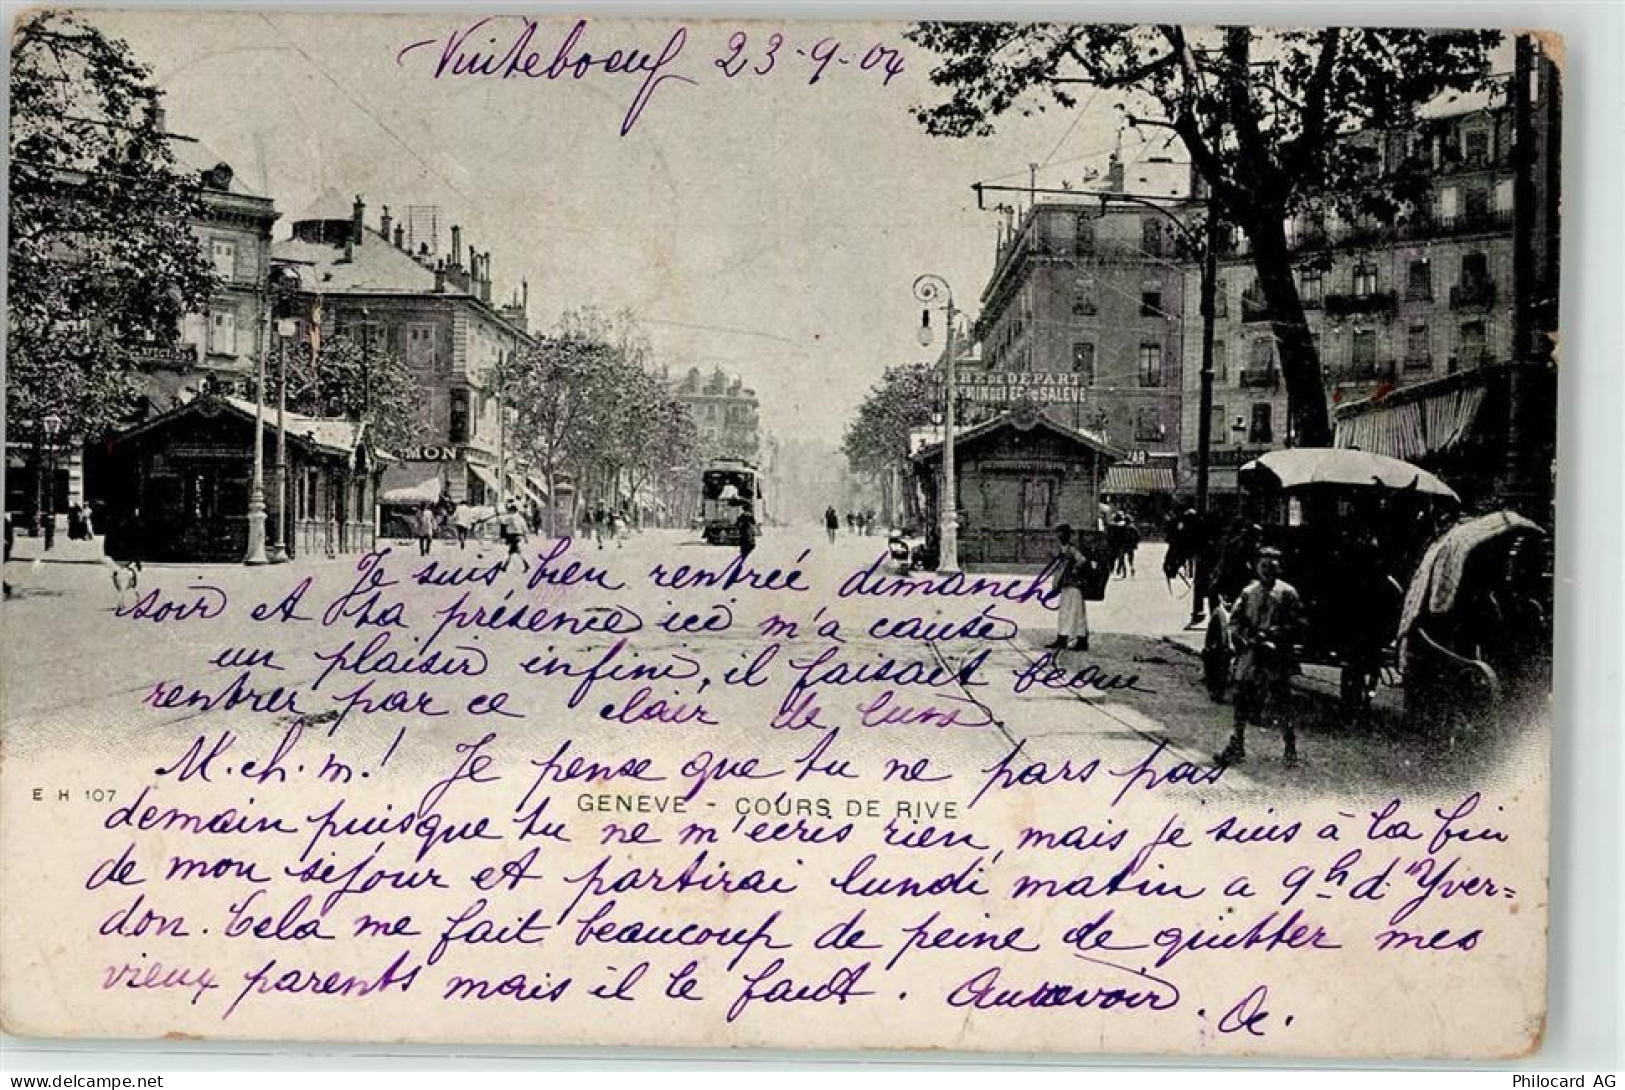 Vuiteboeuf 23-9-04
GARE DE DEPART
SALÈVE
MON
Je suis bien rentrée dimanche
soir et ta présence ici m'a causé
un plaisir infini, il faisait beau
rentrer par ce clair de lune.
M. ch. m.! Je pense que tu ne pars pas
E H 107
GENÈVE - COURS DE RIVE
demain puisque tu ne m'écris rien, mais je suis à la fin
de mon séjour et partirai lundi matin a 9h d'Yver=
don. Cela me fait beaucoup de peine de quitter mes
vieux parents mais il le faut. Aurevoir.
Philocard AG